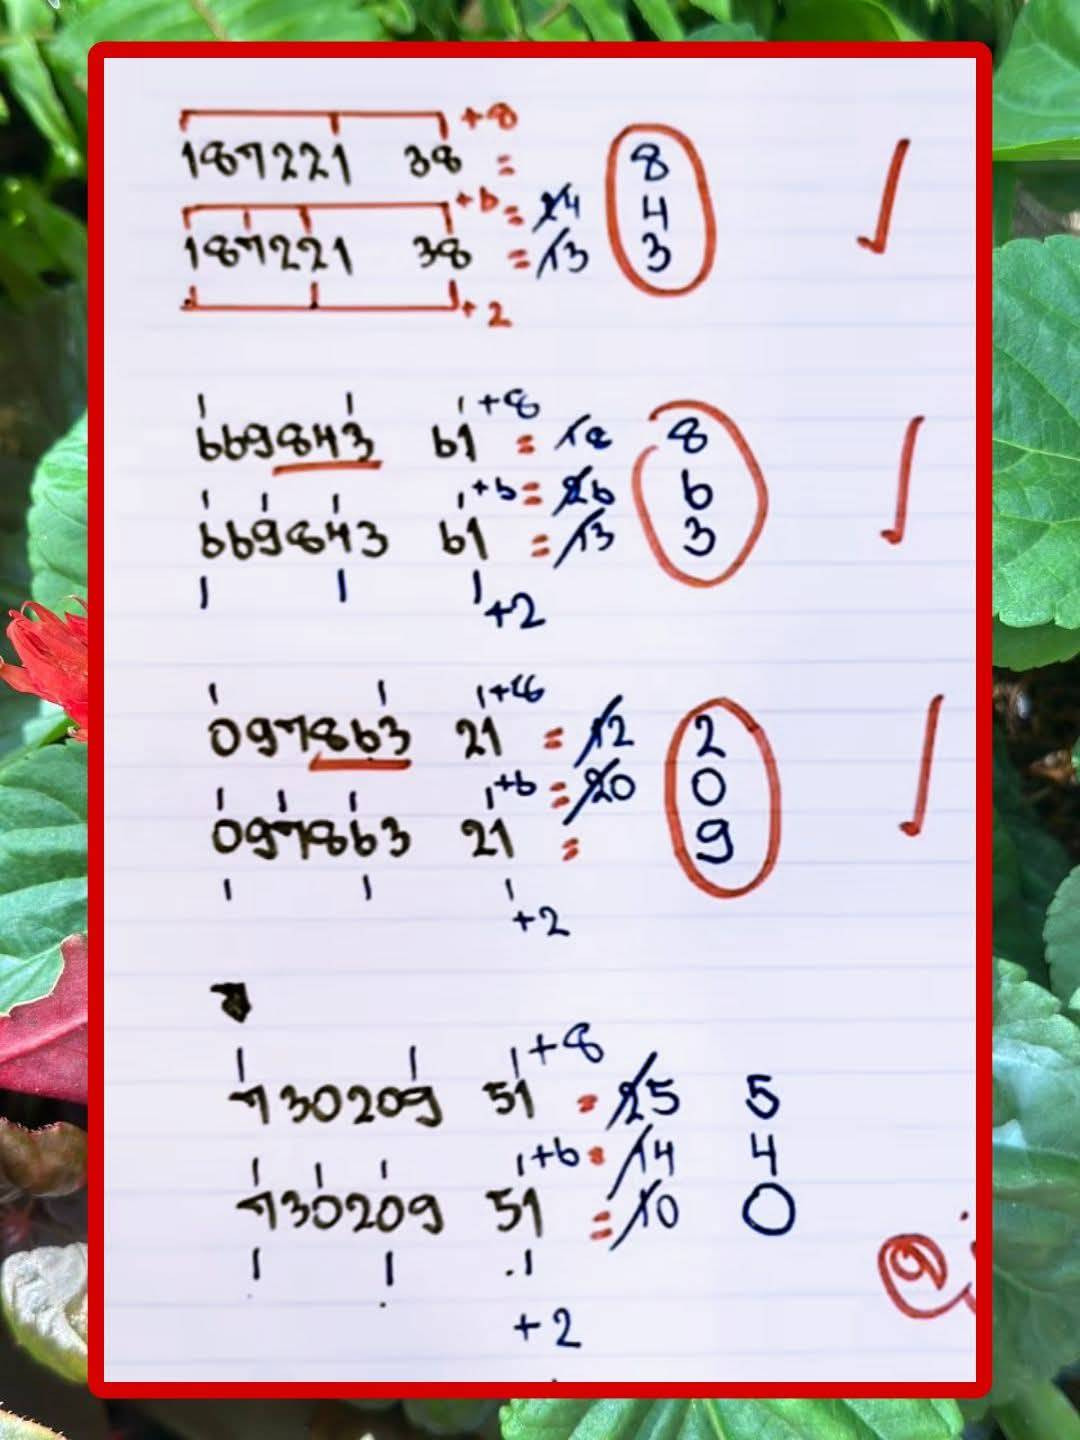 +8
187221 38 = 8
+6 = 24 4
187221 38 = 13 3
+2
+8
669843 61 = 18 8
+6 = 26 6
669843 61 = 13 3
+2
+8
097863 21 = 12 2
+6 = 20 0
097863 21 = 9
+2
+8
730209 51 = 25 5
+6 = 14 4
730209 51 = 10 0
+2